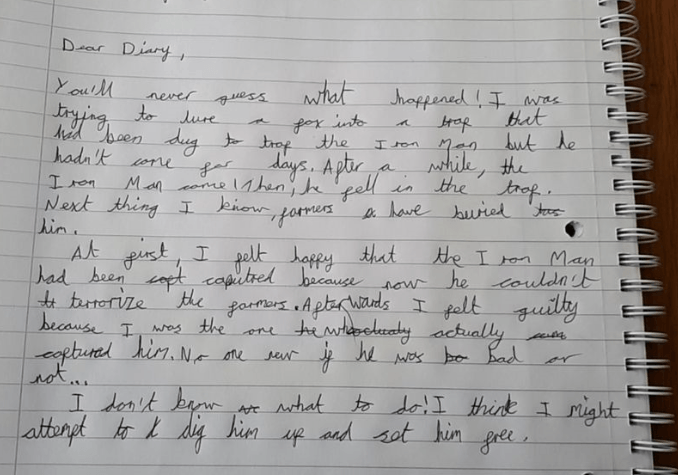 Dear Diary,
You'll never guess what happened! I was
trying to lure a fox into a trap that
had been dug to trap the Iron Man but he
hadn't come for days. After a while, the
Iron Man came! Then, he fell in the trap.
Next thing I know, farmers a have buried
him.
At first, I felt happy that the Iron Man
had been capt caputred because now he couldn't
terrorize the farmers. Afterwards I felt guilty
because I was the one he who actually
captured him. No one new if he was bad or
not...
I don't know what to do! I think I might
attempt to dig him up and set him free.